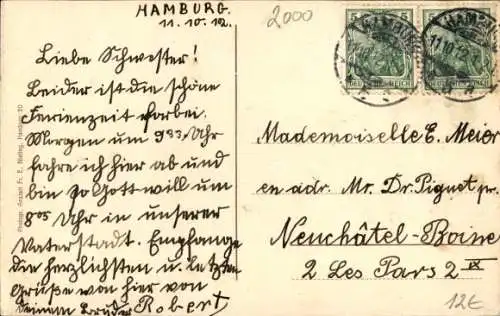 HAMBURG.
11.10.12.
2000
5 5
HAMBURG
11.10.12
DEUTSCHES REICH
Liebe Schwester!
Leider ist die schöne
Ferienzeit vorbei.
Morgen um 9 33 Uhr
fahre ich hier ab und
bin so Gott will um
8 05 Uhr in unserer
Vaterstadt. Empfange
die herzlichsten u. letzten
Grüße von hier von
Deinem Bruder Robert
Mademoiselle E. Meier
en adr. Mr. Dr. Piguet pr.
Neuchâtel-Boine
2 Les Pars 2 IX
12€